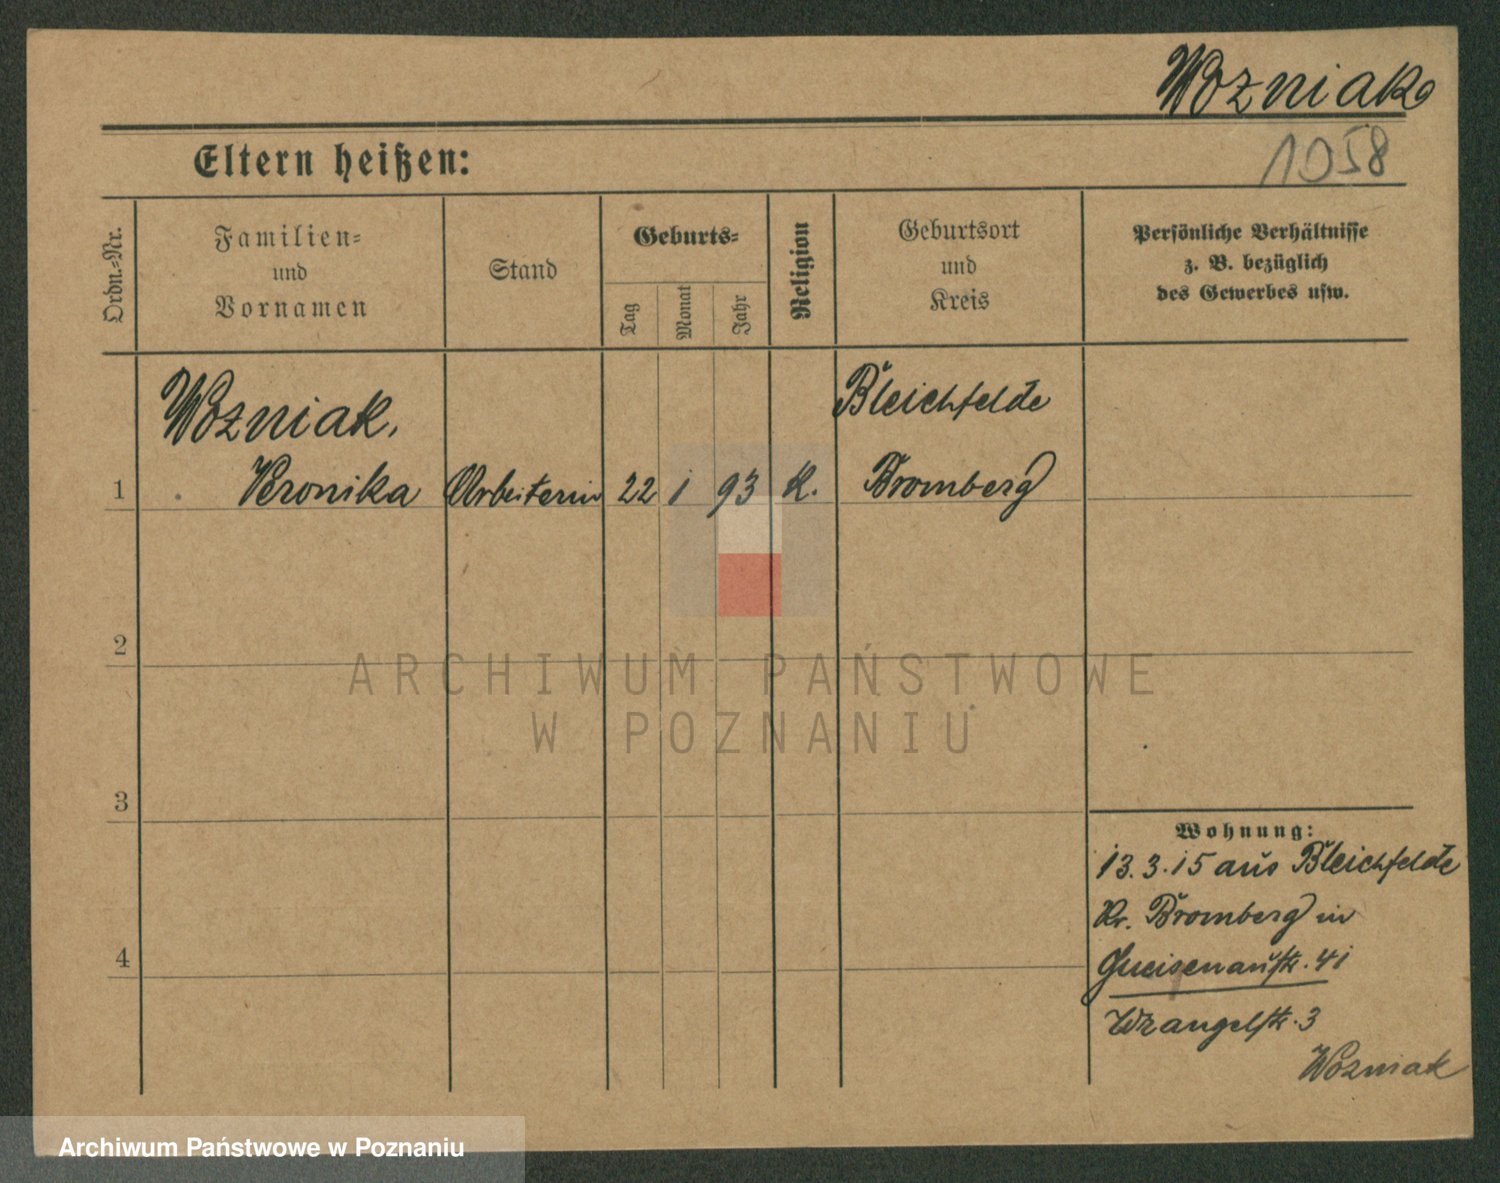 Wozniak
1058
Eltern heißen:
Ordn.-Nr.
Familien-
und
Vornamen
Stand
Geburts-
Tag
Monat
Jahr
Religion
Geburtsort
und
Kreis
Persönliche Verhältnisse
z. B. bezüglich
des Gewerbes usw.
Wozniak,
Bleichfelde
1 Veronika Arbeiterin 22 1 93 K. Bromberg
2
3
4
ARCHIWUM PAŃSTWOWE
W POZNANIU
Wohnung:
13.3.15 aus Bleichfelde
Kr. Bromberg in
Gneisenaustr. 41
Wrangelstr. 3
Wozniak
Archiwum Państwowe w Poznaniu